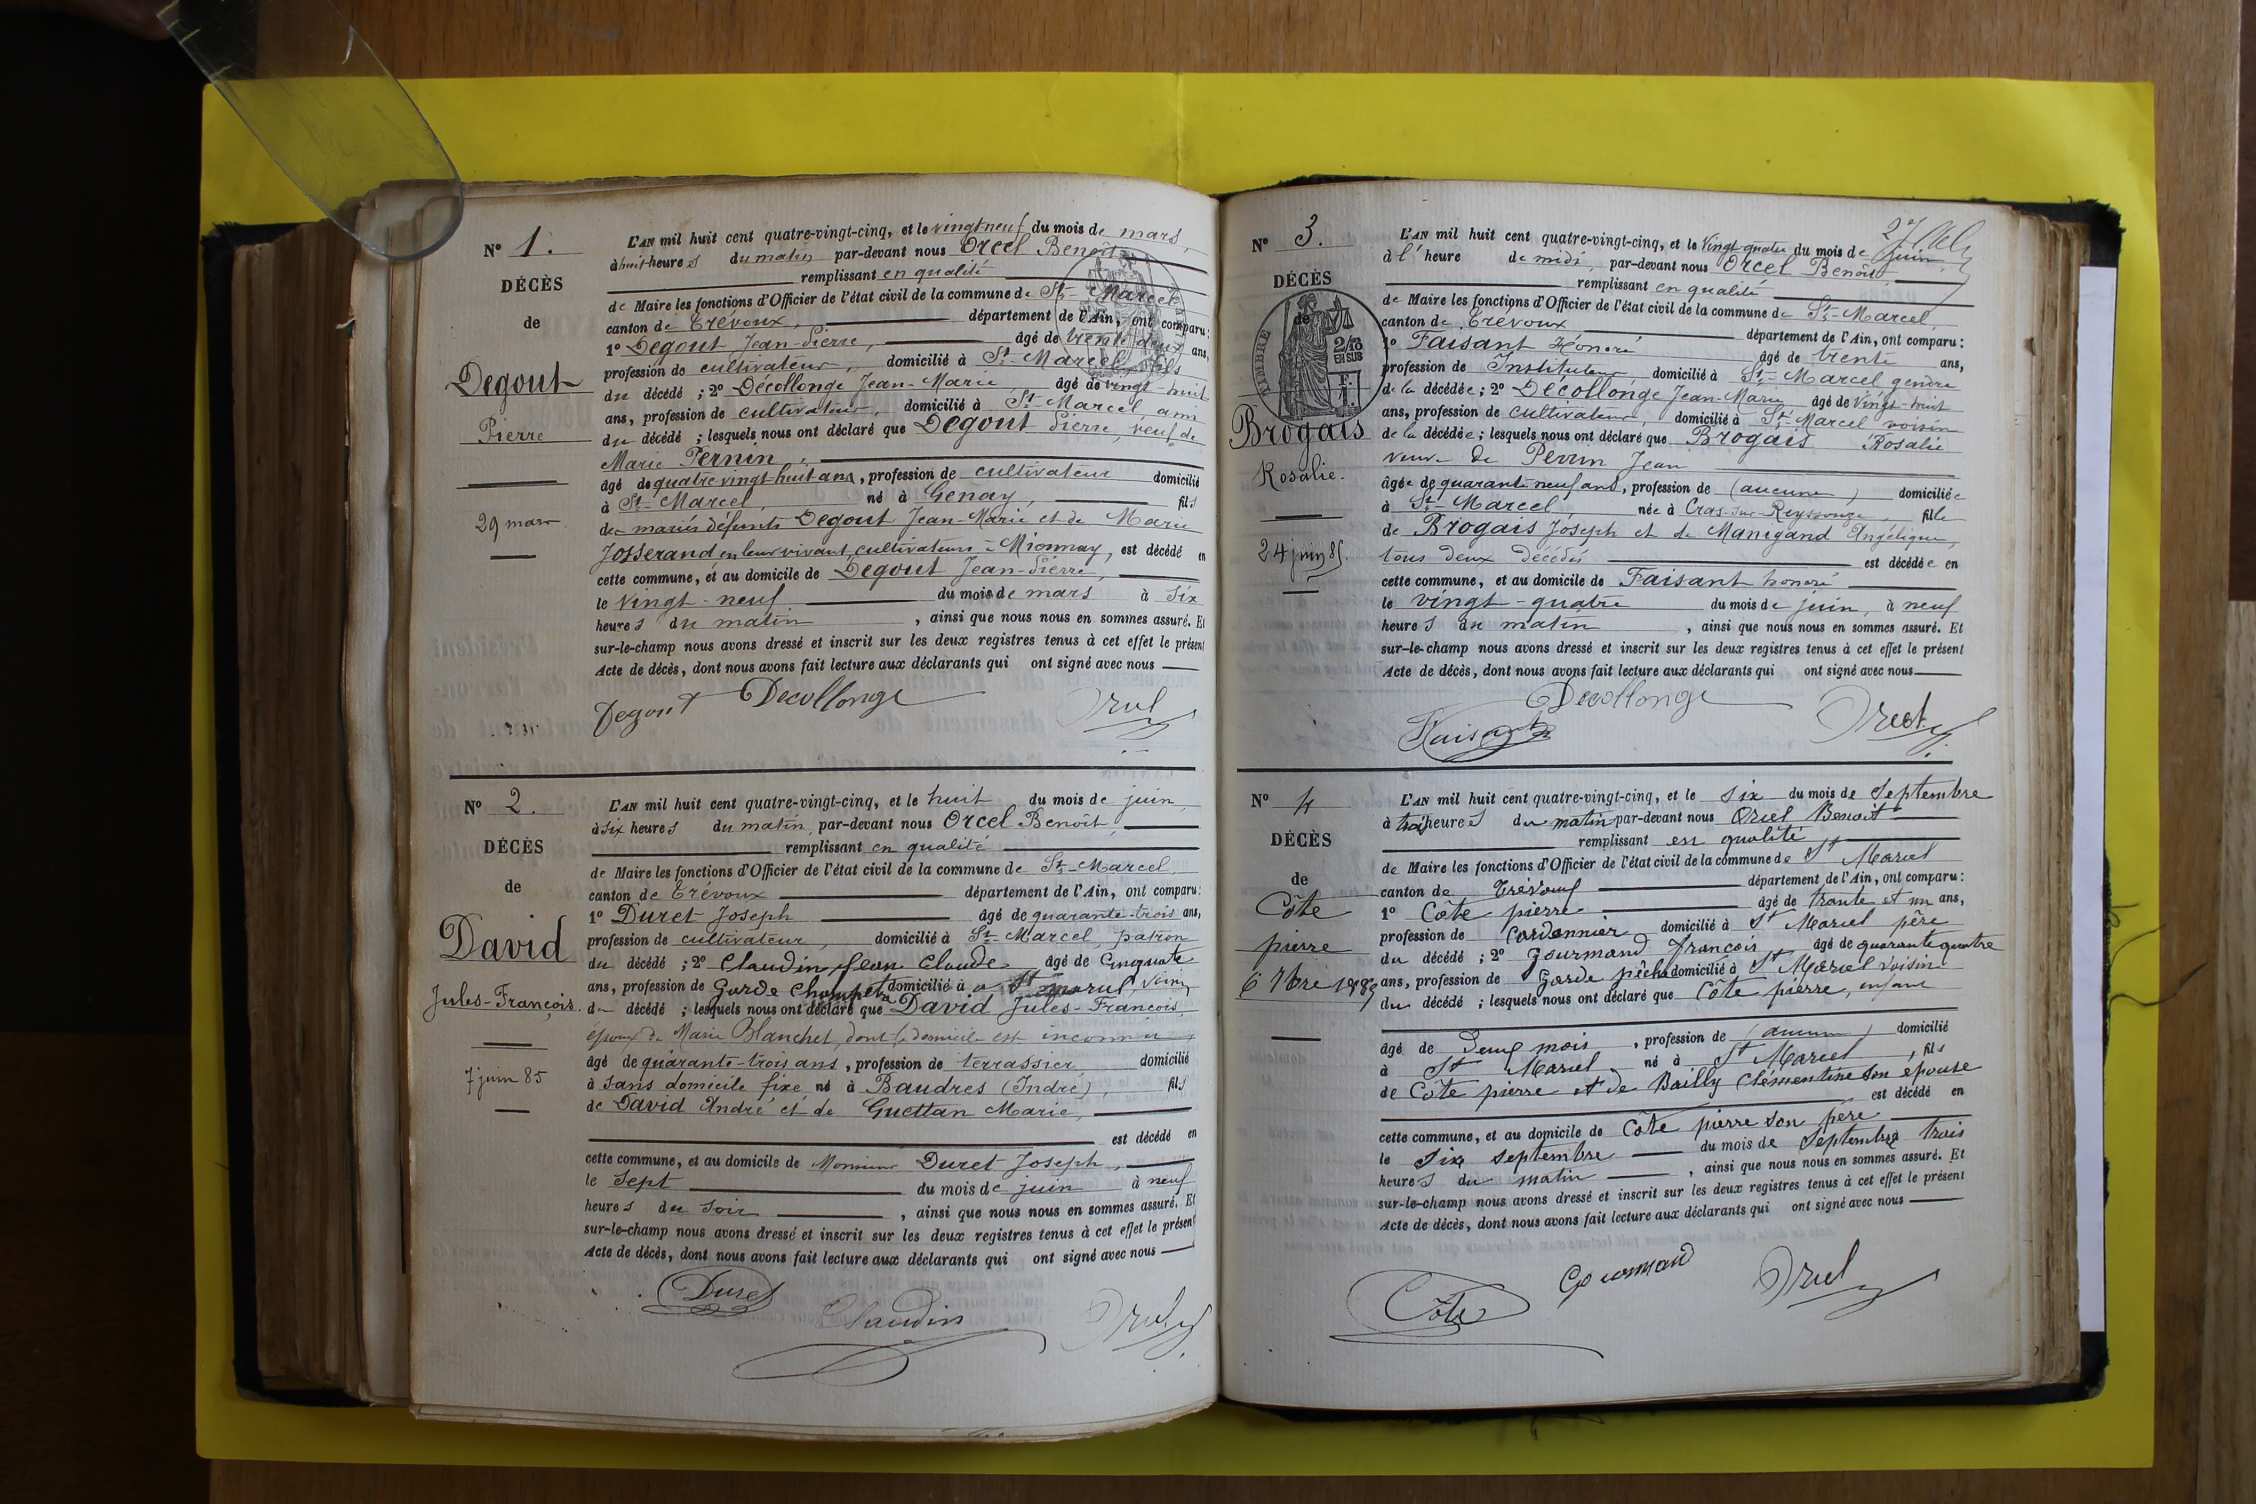 N° 1.
DÉCÈS
de
Degout
Pierre
29 mars
L'AN mil huit cent quatre-vingt-cinq, et le vingt-neuf du mois de mars,
à huit heures du matin par-devant nous Orcel Benoit
remplissant en qualité
de Maire les fonctions d'Officier de l'état civil de la commune de St-Marcel
canton de Trévoux, département de l'Ain, ont comparu:
1° Degout Jean-Pierre, âgé de trente deux ans,
profession de cultivateur, domicilié à St-Marcel, fils
du décédé ; 2° Décollonge Jean-Marie âgé de vingt-huit
ans, profession de cultivateur, domicilié à St-Marcel, ami
du décédé ; lesquels nous ont déclaré que Degout Pierre, veuf de
Marie Pernin,
âgé de quatre vingt-huit ans, profession de cultivateur domicilié
à St-Marcel, né à Genay, fils
de mariés défunts Degout Jean-Marie et de Marie
Josserand en leur vivant cultivateurs à Mionnay, est décédé en
cette commune, et au domicile de Degout Jean-Pierre,
le vingt-neuf du mois de mars à six
heures du matin, ainsi que nous nous en sommes assuré. Et
sur-le-champ nous avons dressé et inscrit sur les deux registres tenus à cet effet le présent
Acte de décès, dont nous avons fait lecture aux déclarants qui ont signé avec nous
Degout Decollonge Orcel
N° 2.
DÉCÈS
de
David
Jules-François.
7 juin 85
L'AN mil huit cent quatre-vingt-cinq, et le huit du mois de juin,
à six heures du matin, par-devant nous Orcel Benoit,
remplissant en qualité
de Maire les fonctions d'Officier de l'état civil de la commune de St-Marcel
canton de Trévoux département de l'Ain, ont comparu:
1° Duret Joseph âgé de quarante-trois ans,
profession de cultivateur, domicilié à St-Marcel, patron
du décédé ; 2° Claudin Jean Claude âgé de Cinquante
ans, profession de Garde Champêtre domicilié à St Marcel, voisin
du décédé ; lesquels nous ont déclaré que David Jules-François,
époux de Marie Blanchet, dont le domicile est inconnu
âgé de quarante-trois ans, profession de terrassier domicilié
à sans domicile fixe né à Baudres (Indre), fils
de David André et de Guettan Marie,
est décédé en
cette commune, et au domicile de Monsieur Duret Joseph,
le sept du mois de juin à neuf
heures du soir, ainsi que nous nous en sommes assuré. Et
sur-le-champ nous avons dressé et inscrit sur les deux registres tenus à cet effet le présent
Acte de décès, dont nous avons fait lecture aux déclarants qui ont signé avec nous
Duret Claudin Orcel
N° 3.
DÉCÈS
de
TIMBRE
2/10
EN SUS
Brogais
Rosalie.
24 juin 85.
L'AN mil huit cent quatre-vingt-cinq, et le Vingt quatre du mois de juin
à l'heure de midi, par-devant nous Orcel Benoit
remplissant en qualité
de Maire les fonctions d'Officier de l'état civil de la commune de St-Marcel
canton de Trévoux département de l'Ain, ont comparu:
1° Faisant Honoré âgé de trente ans,
profession de Instituteur domicilié à St-Marcel gendre
de la décédée ; 2° Décollonge Jean-Marie âgé de Vingt-huit
ans, profession de cultivateur, domicilié à St-Marcel voisin
de la décédée ; lesquels nous ont déclaré que Brogais Rosalie
veuve de Perrin Jean
âgée de quarante neuf ans, profession de (aucune) domiciliée
à St-Marcel, née à Cras-sur-Reyssouze, fille
de Brogais Joseph et de Manigand Angélique,
tous deux décédés est décédée en
cette commune, et au domicile de Faisant honoré
le vingt-quatre du mois de juin, à neuf
heures du matin, ainsi que nous nous en sommes assuré. Et
sur-le-champ nous avons dressé et inscrit sur les deux registres tenus à cet effet le présent
Acte de décès, dont nous avons fait lecture aux déclarants qui ont signé avec nous
Faisant Decollonge Orcel
N° 4
DÉCÈS
de
Côte
pierre
6 7bre 1885
L'AN mil huit cent quatre-vingt-cinq, et le six du mois de Septembre
à trois heures du matin par-devant nous Orcel Benoit
remplissant en qualité
de Maire les fonctions d'Officier de l'état civil de la commune de St Marcel
canton de Trévoux département de l'Ain, ont comparu:
1° Côte pierre âgé de trante et un ans,
profession de Cordonnier domicilié à St Marcel père
du décédé ; 2° Gourmand françois âgé de quarante quatre
ans, profession de Garde pêche domicilié à St Marcel voisin
du décédé ; lesquels nous ont déclaré que Côte pierre, enfant
âgé de Deux mois, profession de (aucune) domicilié
à St Marcel né à St Marcel, fils
de Côte pierre et de Bailly Clémentine Son épouse
est décédé en
cette commune, et au domicile de Côte pierre son père
le six septembre du mois de Septembre à trois
heures du matin, ainsi que nous nous en sommes assuré. Et
sur-le-champ nous avons dressé et inscrit sur les deux registres tenus à cet effet le présent
Acte de décès, dont nous avons fait lecture aux déclarants qui ont signé avec nous
Côte Gourmand Orcel